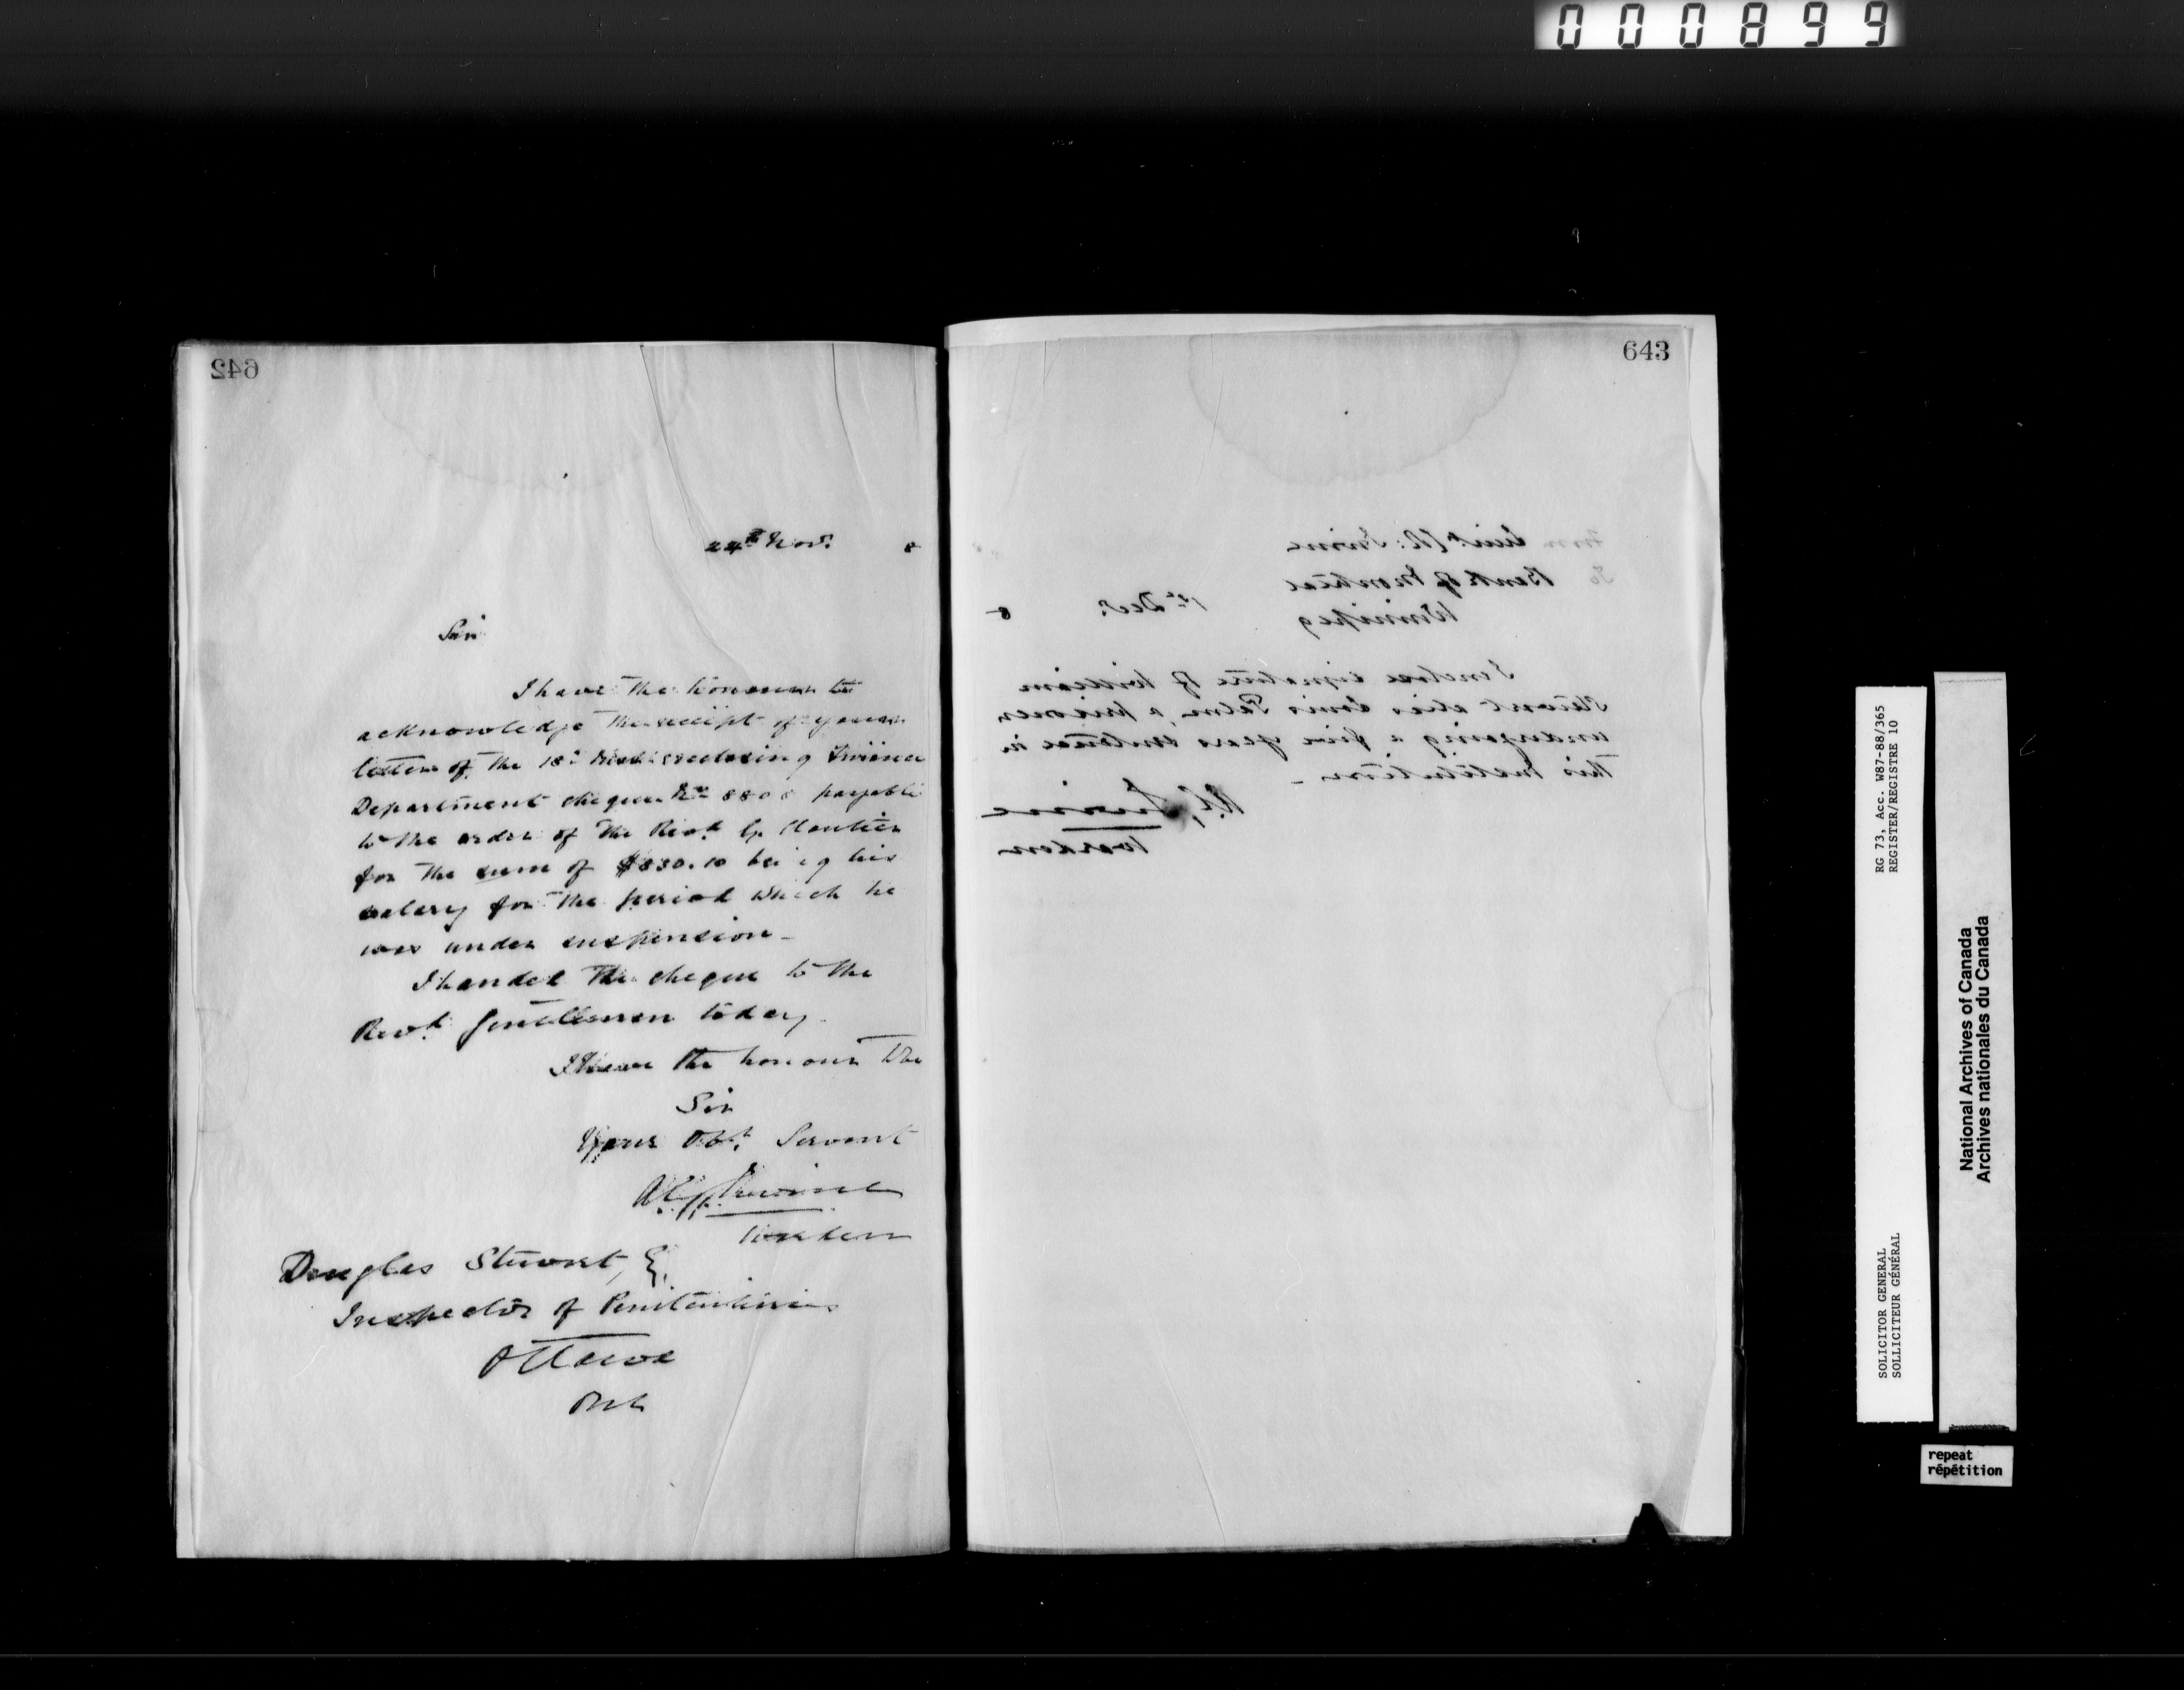 000899
642
24th Novr. 8
Sir
I have the honour to
acknowledge the receipt of your
letter of the 18th inst. enclosing Finance
Department cheque No 8808 payable
to the order of the Revd. G. Cloutier
for the sum of $830.10 being his
salary for the period which he
was under suspension_
I handed the cheque to the
Revd. Gentleman today.
I have the honour to be
Sir
Your Obt. Servant
A.G. Irvine
Warden
Douglas Stewart,
Inspector of Penitentiaries
Ottawa
643
From Lieut. Col. Irvine
To Bank of Montreal
Winnipeg
1st Decr. 8
I enclose signature of William
Stewart alias Louis Palm, a prisoner
undergoing a five years sentence in
this Institution_
A.G. Irvine
Warden
RG 73, Acc. W87-88/365
REGISTER/REGISTRE 10
SOLICITOR GENERAL
SOLLICITEUR GÉNÉRAL
National Archives of Canada
Archives nationales du Canada
repeat
répétition